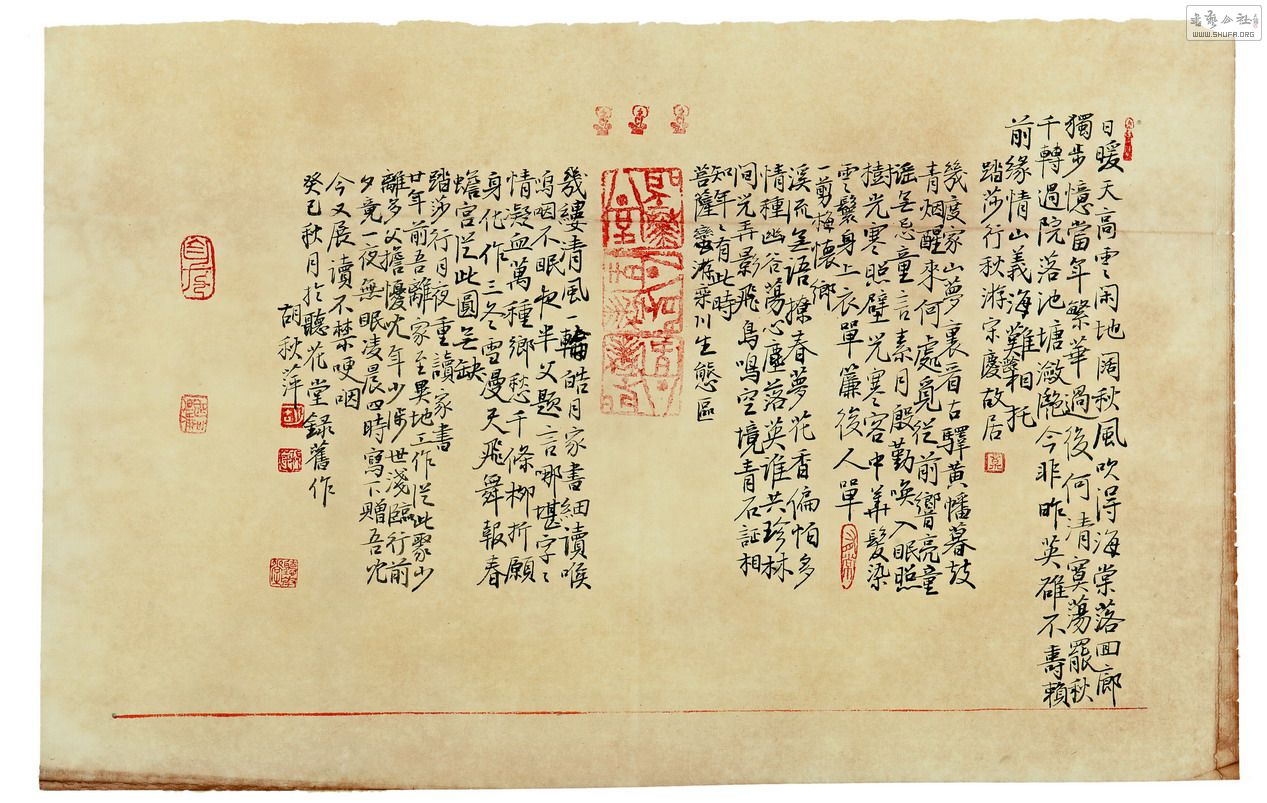 日暖天高雲闲地阔秋風吹得海棠落回廊
獨步憶當年繁華過後何清寞蕩罷秋
千轉過院落池塘潋滟今非昨英雄不壽賴
前缘情山義海難相托
踏莎行秋游宗慶故居
幾度家山夢裏看古驛黃幡暮鼓
青烟醒來何處覓從前響亮童
謡無忌童言素月殷勤唤入眠照
樹光寒照壁光寒客中華髮染
雲鬟身上衣單簾後人單
一剪梅懷鄉
溪流無語撩春夢花香偏怕多
情種幽谷蕩心塵落英誰共珍林
间光弄影飛鳥鳴空境青石証相
知年年有此時
菩薩蠻游栾川生態區
幾縷清風一輪皓月家書細讀喉
嗚咽不眠夜半父題言哪堪字字
情凝血萬種鄉愁千條柳折願
身化作三冬雪漫天飛舞報春
蟾宫從此圓無缺
踏莎行月夜重讀家書
廿年前吾離家至異地工作從此聚少
離多父擔憂吾年少涉世淺臨行前
夕竟一夜無眠凌晨四時寫下贈吾
今又展讀不禁哽咽
癸巳秋月於聽花堂録舊作
胡秋萍
書藝公社
WWW.SHUFA.ORG